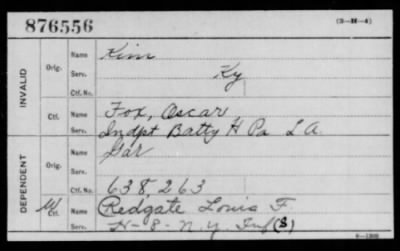 876556 (3-H-4)
INVALID
Orig. Name Kim
Serv. Ky
Ctf. No.
Ctf. Name Fox, Oscar
Serv. Indpt Batty H Pa L A.
DEPENDENT
Orig. Name Gar
Serv.
Ctf. No. 638,263
W Ctf. Name Redgate Louis F
Serv. H-8-N.Y. Inf (S)